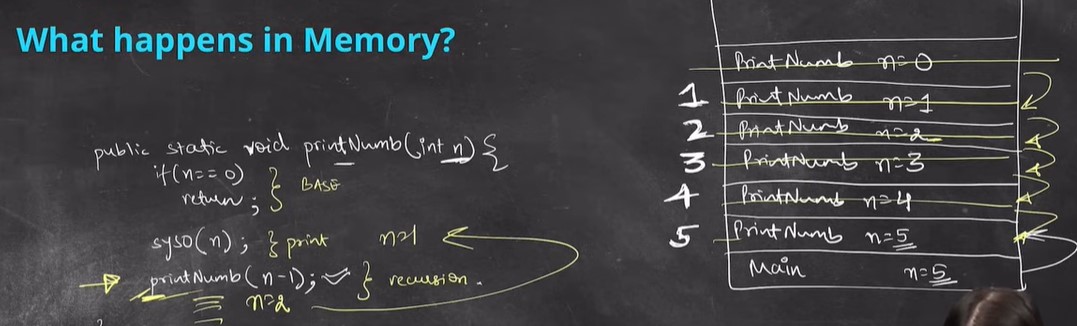 What happens in Memory?
public static void printNumb(int n) {
if(n==0)
return;
} BASE
syso(n); } print n=1
printNumb(n-1); } recursion.
n=2
Print Numb n=0
1 Print Numb n=1
2 Print Numb n=2
3 PrintNumb n=3
4 PrintNumb n=4
5 Print Numb n=5
Main n=5